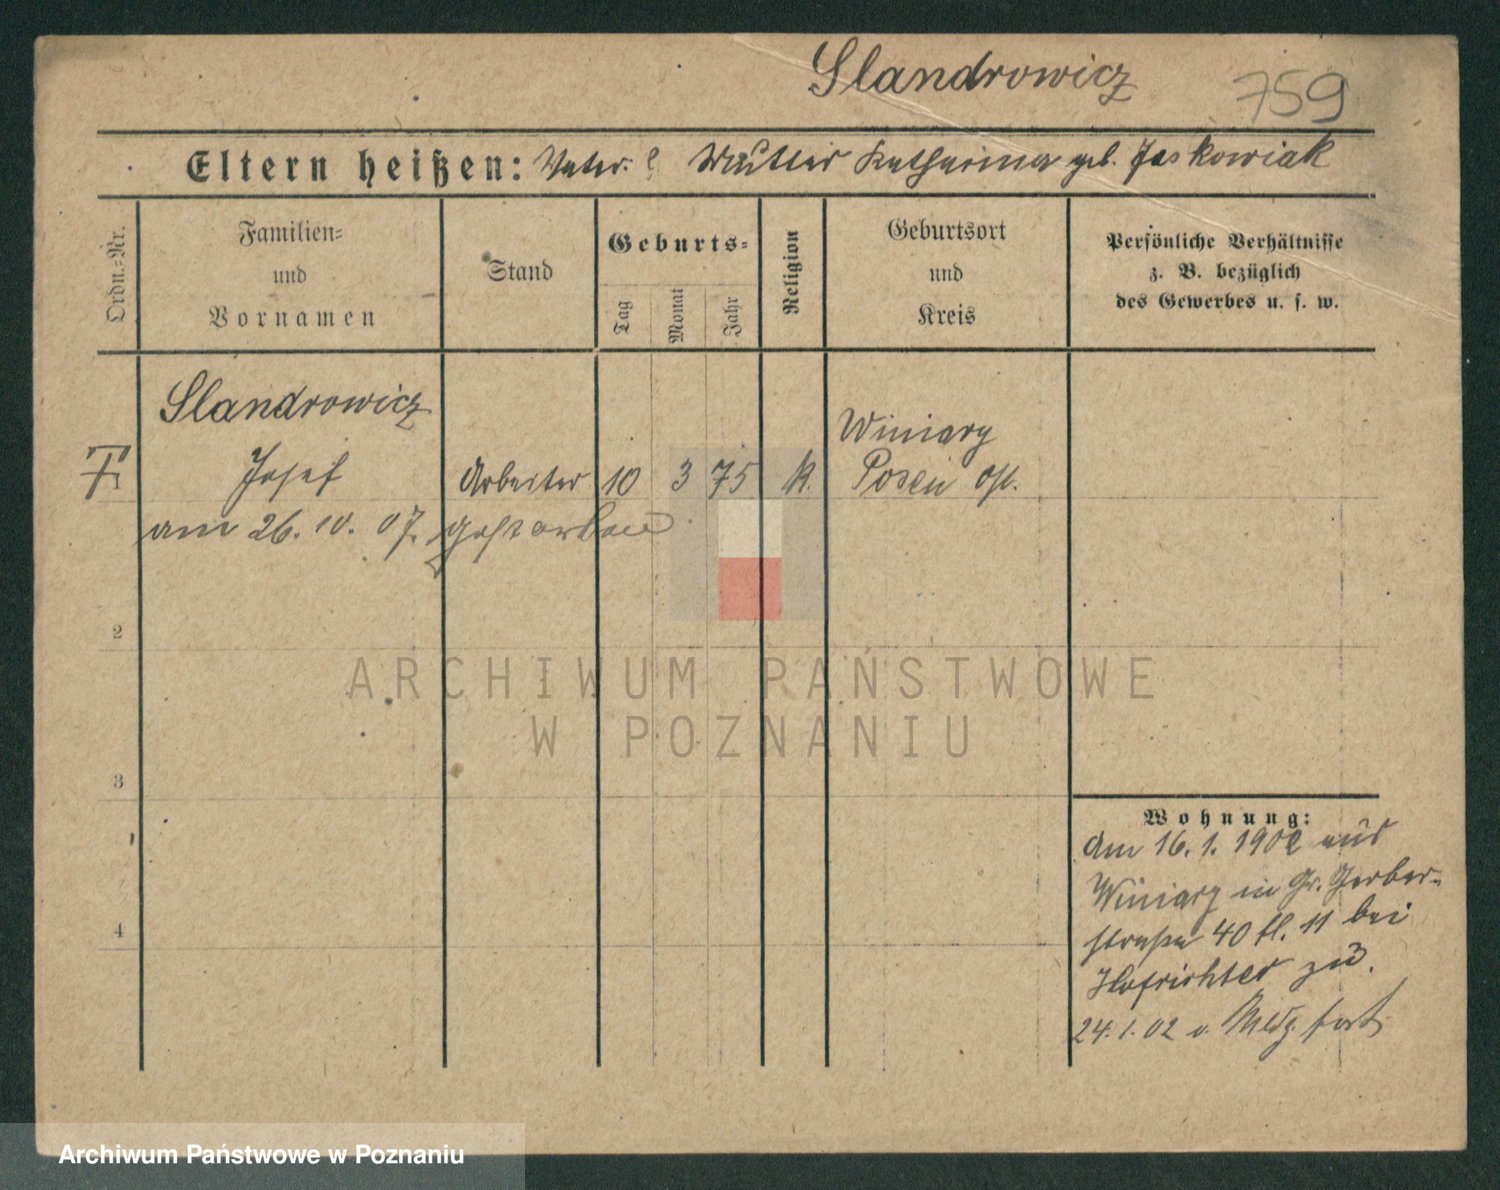 Slandrowicz 759
Eltern heißen: Vater: ? Mutter Katharina geb. Jaskowiak
Ordn.-Nr.
Familien- und Vornamen
Stand
Geburts-
Tag
Monat
Jahr
Religion
Geburtsort und Kreis
Persönliche Verhältnisse
z. B. bezüglich
des Gewerbes u. s. w.
Slandrowicz
Josef Arbeiter 10 3 75 k.
Winiary
Posen Ost.
am 26. 10. 07 gestorben
2
3
4
Wohnung:
Am 16. 1. 1902 aus
Winiary in Gr. Gerber-
straße 40 II. 11 bei
Hofrichter zu.
24. 1. 02 o. Meldg fort
ARCHIWUM PAŃSTWOWE
W POZNANIU
Archiwum Państwowe w Poznaniu